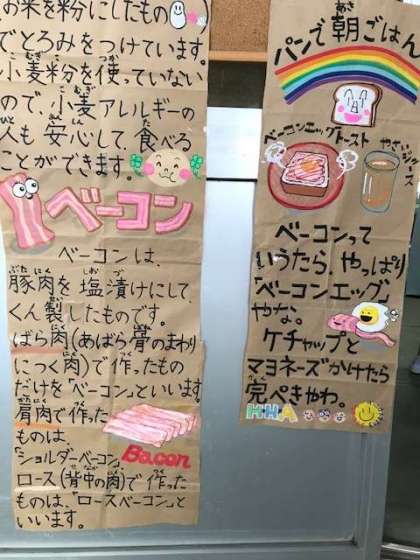 お米を粉にしたもの
でとろみをつけています。
小麦粉を使っていない
ので、小麦アレルギーの
人も安心して食べる
ことができます。
ベーコン
ベーコンは、
豚肉を塩漬けにして、
くん製したものです。
ばら肉(あばら骨のまわり
につく肉)で作ったもの
だけを「ベーコン」といいます。
肩肉で作った
ものは、
「ショルダーベーコン」、
Bacon
ロース(背中の肉)で作った
ものは、「ロースベーコン」と
いいます。
パンで朝ごはん
ベーコンエッグトースト
やさいジュース
ベーコンって
いうたら、やっぱり
「ベーコンエッグ」
やな。
ケチャップと
マヨネーズかけたら
完ぺきやわ。